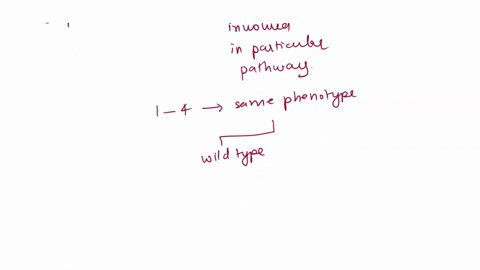 involved
in particular
pathway.
1 – 4 → same phenotype
wild type